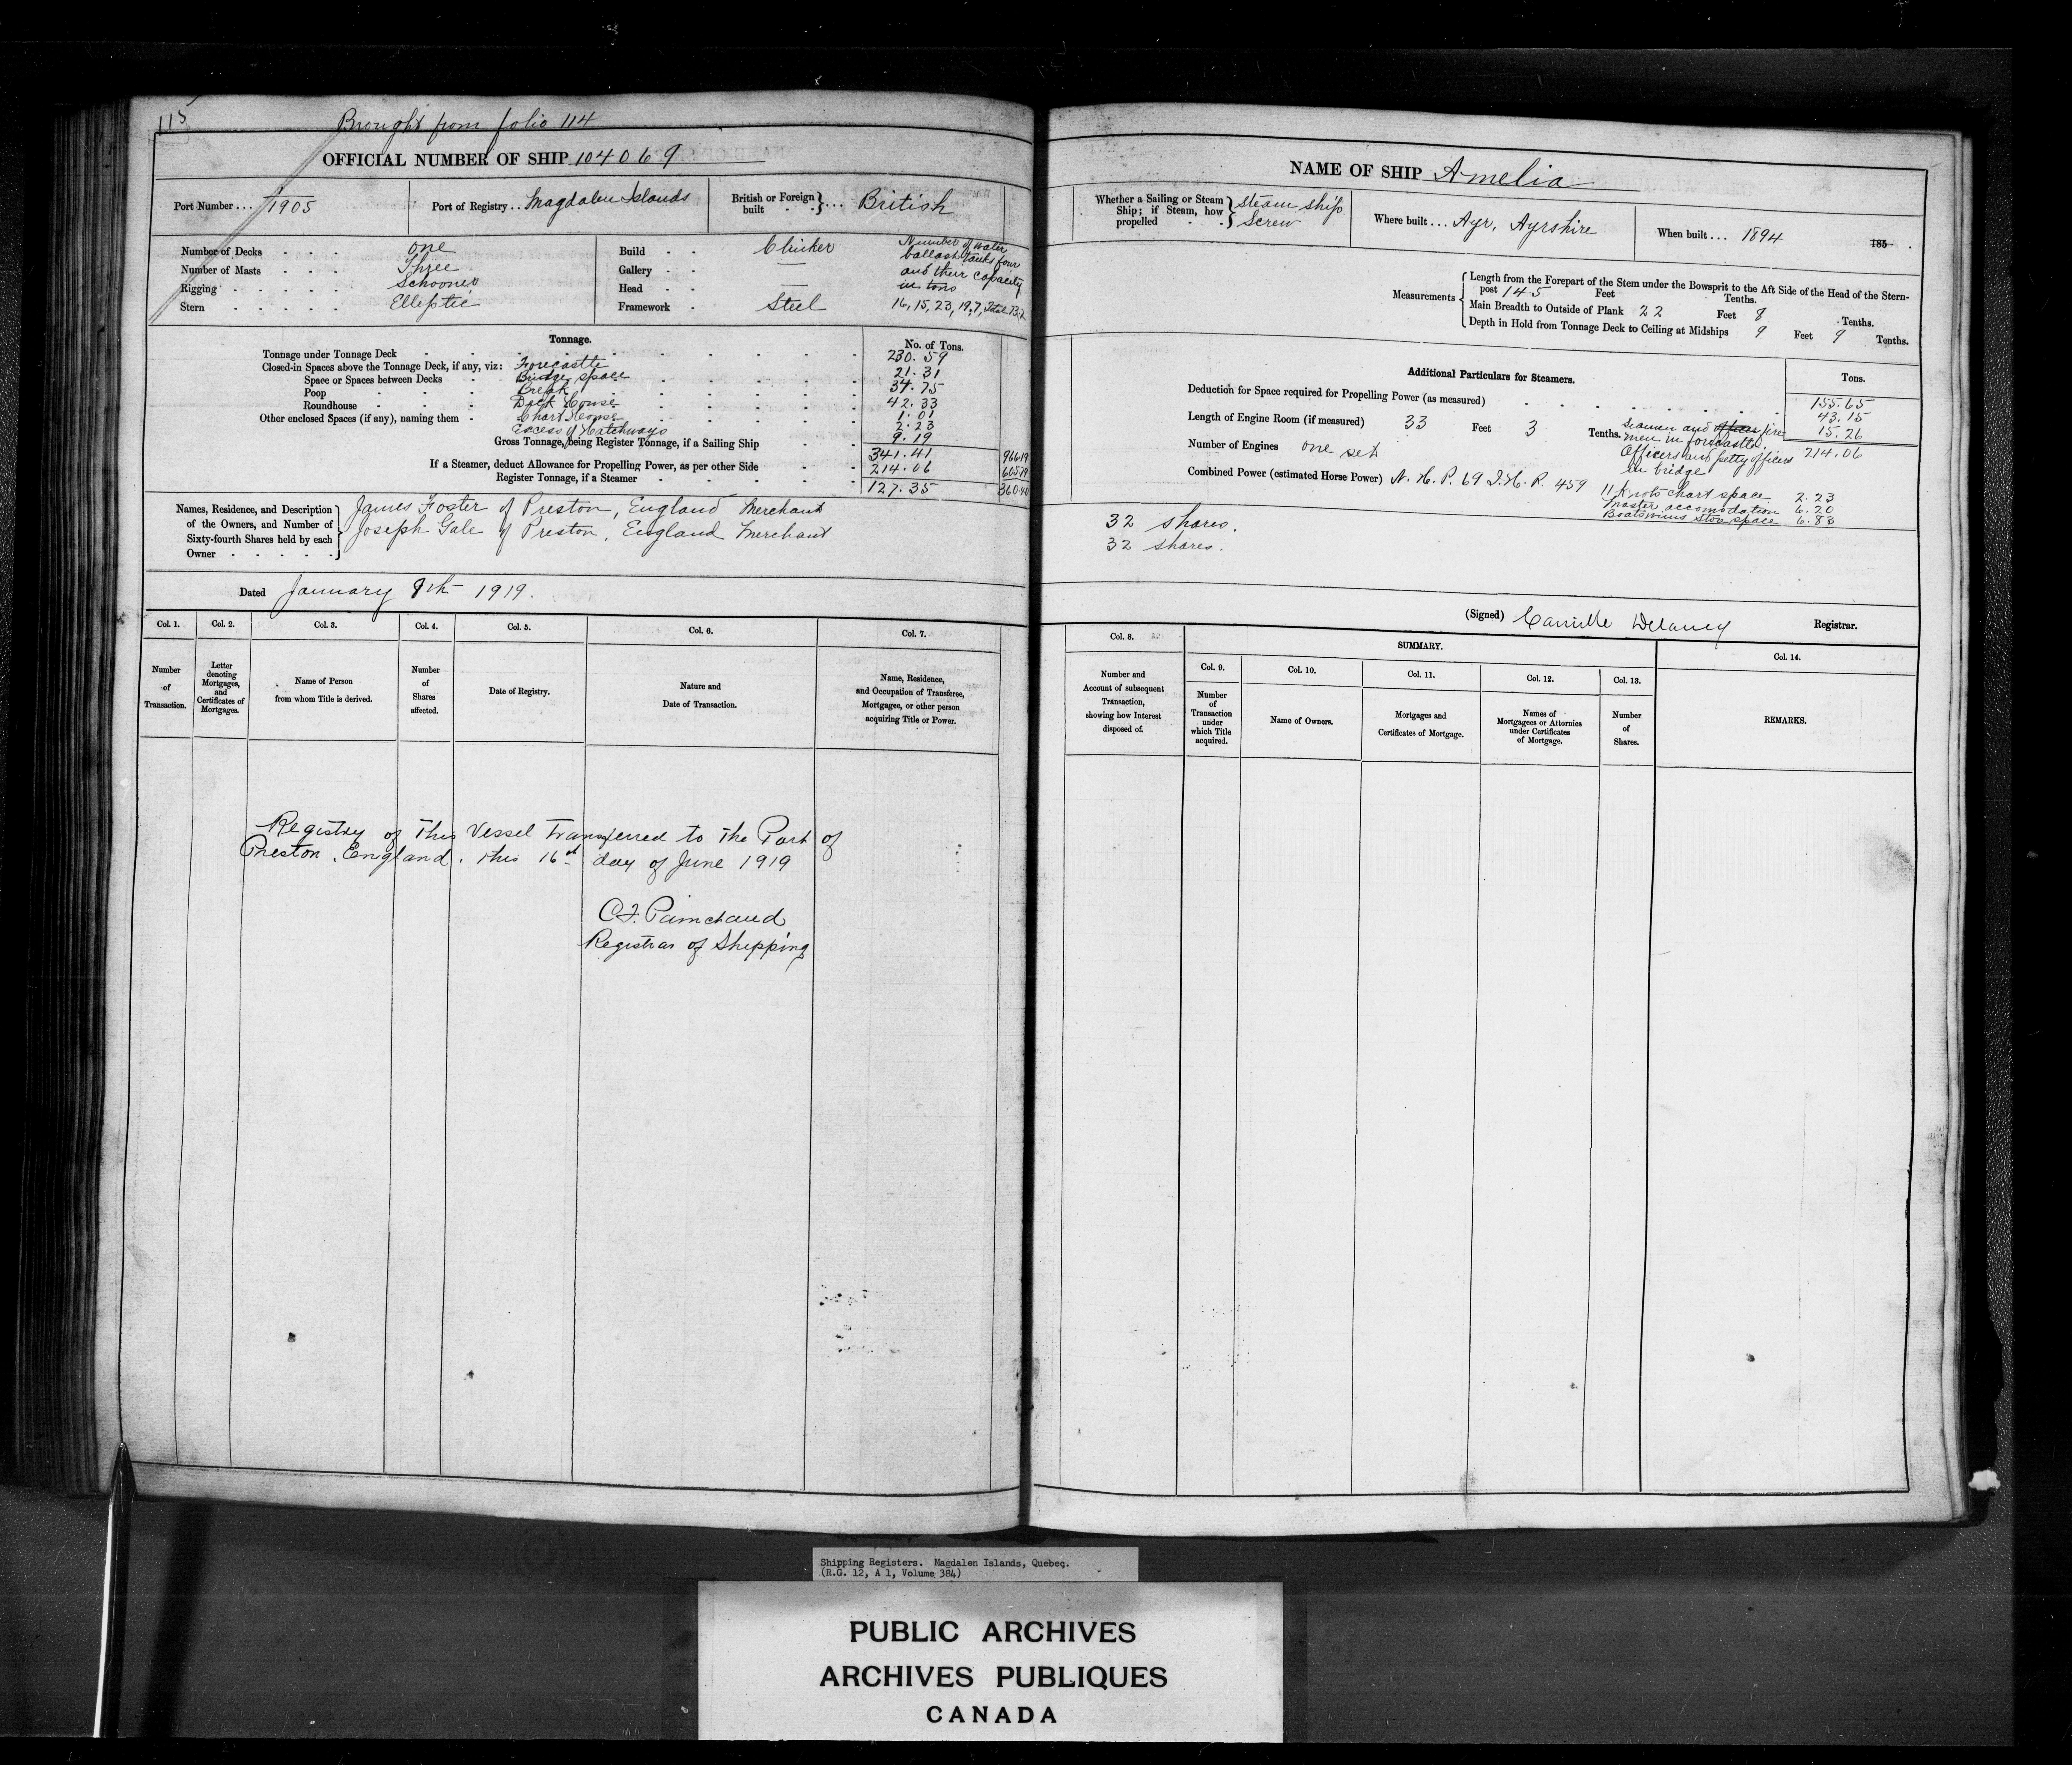 115
Brought from folio 114
OFFICIAL NUMBER OF SHIP 104069
Port Number... 1905
Port of Registry.. Magdalen Islands
British or Foreign built } ... British
Number of Decks . . . one
Number of Masts . . . Three
Rigging . . . . . Schooner
Stern . . . . . Elleptic
Build . . Clinker
Gallery . . —
Head . . —
Framework . Steel
Number of water
ballast tanks four
and their capacity
in tons
Tonnage.
No. of Tons.
Tonnage under Tonnage Deck 230.59
Closed-in Spaces above the Tonnage Deck, if any, viz: Forecastle 21.31
Space or Spaces between Decks Bridge space 34.75
Poop Break 42.33
Roundhouse Deck House 1.01
Other enclosed Spaces (if any), naming them Chart House 2.23
Excess of Hatchways 9.19
Gross Tonnage, being Register Tonnage, if a Sailing Ship 341.41 96619
If a Steamer, deduct Allowance for Propelling Power, as per other Side 214.06 60579
Register Tonnage, if a Steamer 127.35 36040
Names, Residence, and Description
of the Owners, and Number of
Sixty-fourth Shares held by each
Owner
James Foster of Preston, England Merchant
Joseph Gale of Preston, England Merchant
Dated January 9th 1919.
Col. 1. Col. 2. Col. 3. Col. 4. Col. 5. Col. 6. Col. 7.
Number of Transaction.
Letter denoting Mortgages, and Certificates of Mortgages.
Name of Person from whom Title is derived.
Number of Shares affected.
Date of Registry.
Nature and Date of Transaction.
Name, Residence, and Occupation of Transferee, Mortgagee, or other person acquiring Title or Power.
Registry of this Vessel Transferred to the Port of
Preston, England, this 16th day of June 1919
C.F. Painchaud
Registrar of Shipping
NAME OF SHIP Amelia
Whether a Sailing or Steam
Ship; if Steam, how
propelled
Steam ship
Screw
Where built... Ayr, Ayrshire
When built... 1894
185 .
Measurements
Length from the Forepart of the Stem under the Bowsprit to the Aft Side of the Head of the Stern-
post 145 Feet Tenths.
Main Breadth to Outside of Plank 22 Feet 8 Tenths.
Depth in Hold from Tonnage Deck to Ceiling at Midships 9 Feet 9 Tenths.
Additional Particulars for Steamers.
Tons.
Deduction for Space required for Propelling Power (as measured) 155.65
43.15
15.26
214.06
Length of Engine Room (if measured) 33 Feet 3 Tenths.
Seamen and fire
men in forecastle
Officers and petty officers
in bridge
Number of Engines one set
Combined Power (estimated Horse Power) N.H.P. 69 I.H.P. 459
11 Knots chart space 2.23
Master accomodation 6.20
Boatswains store space 6.83
32 shares.
32 shares.
(Signed) Camille Delaney Registrar.
Col. 8.
SUMMARY.
Col. 9. Col. 10. Col. 11. Col. 12. Col. 13. Col. 14.
Number and Account of subsequent Transaction, showing how Interest disposed of.
Number of Transaction under which Title acquired.
Name of Owners.
Mortgages and Certificates of Mortgage.
Names of Mortgagees or Attornies under Certificates of Mortgage.
Number of Shares.
REMARKS.
Shipping Registers. Magdalen Islands, Quebec.
(R.G. 12, A 1, Volume 384)
PUBLIC ARCHIVES
ARCHIVES PUBLIQUES
CANADA